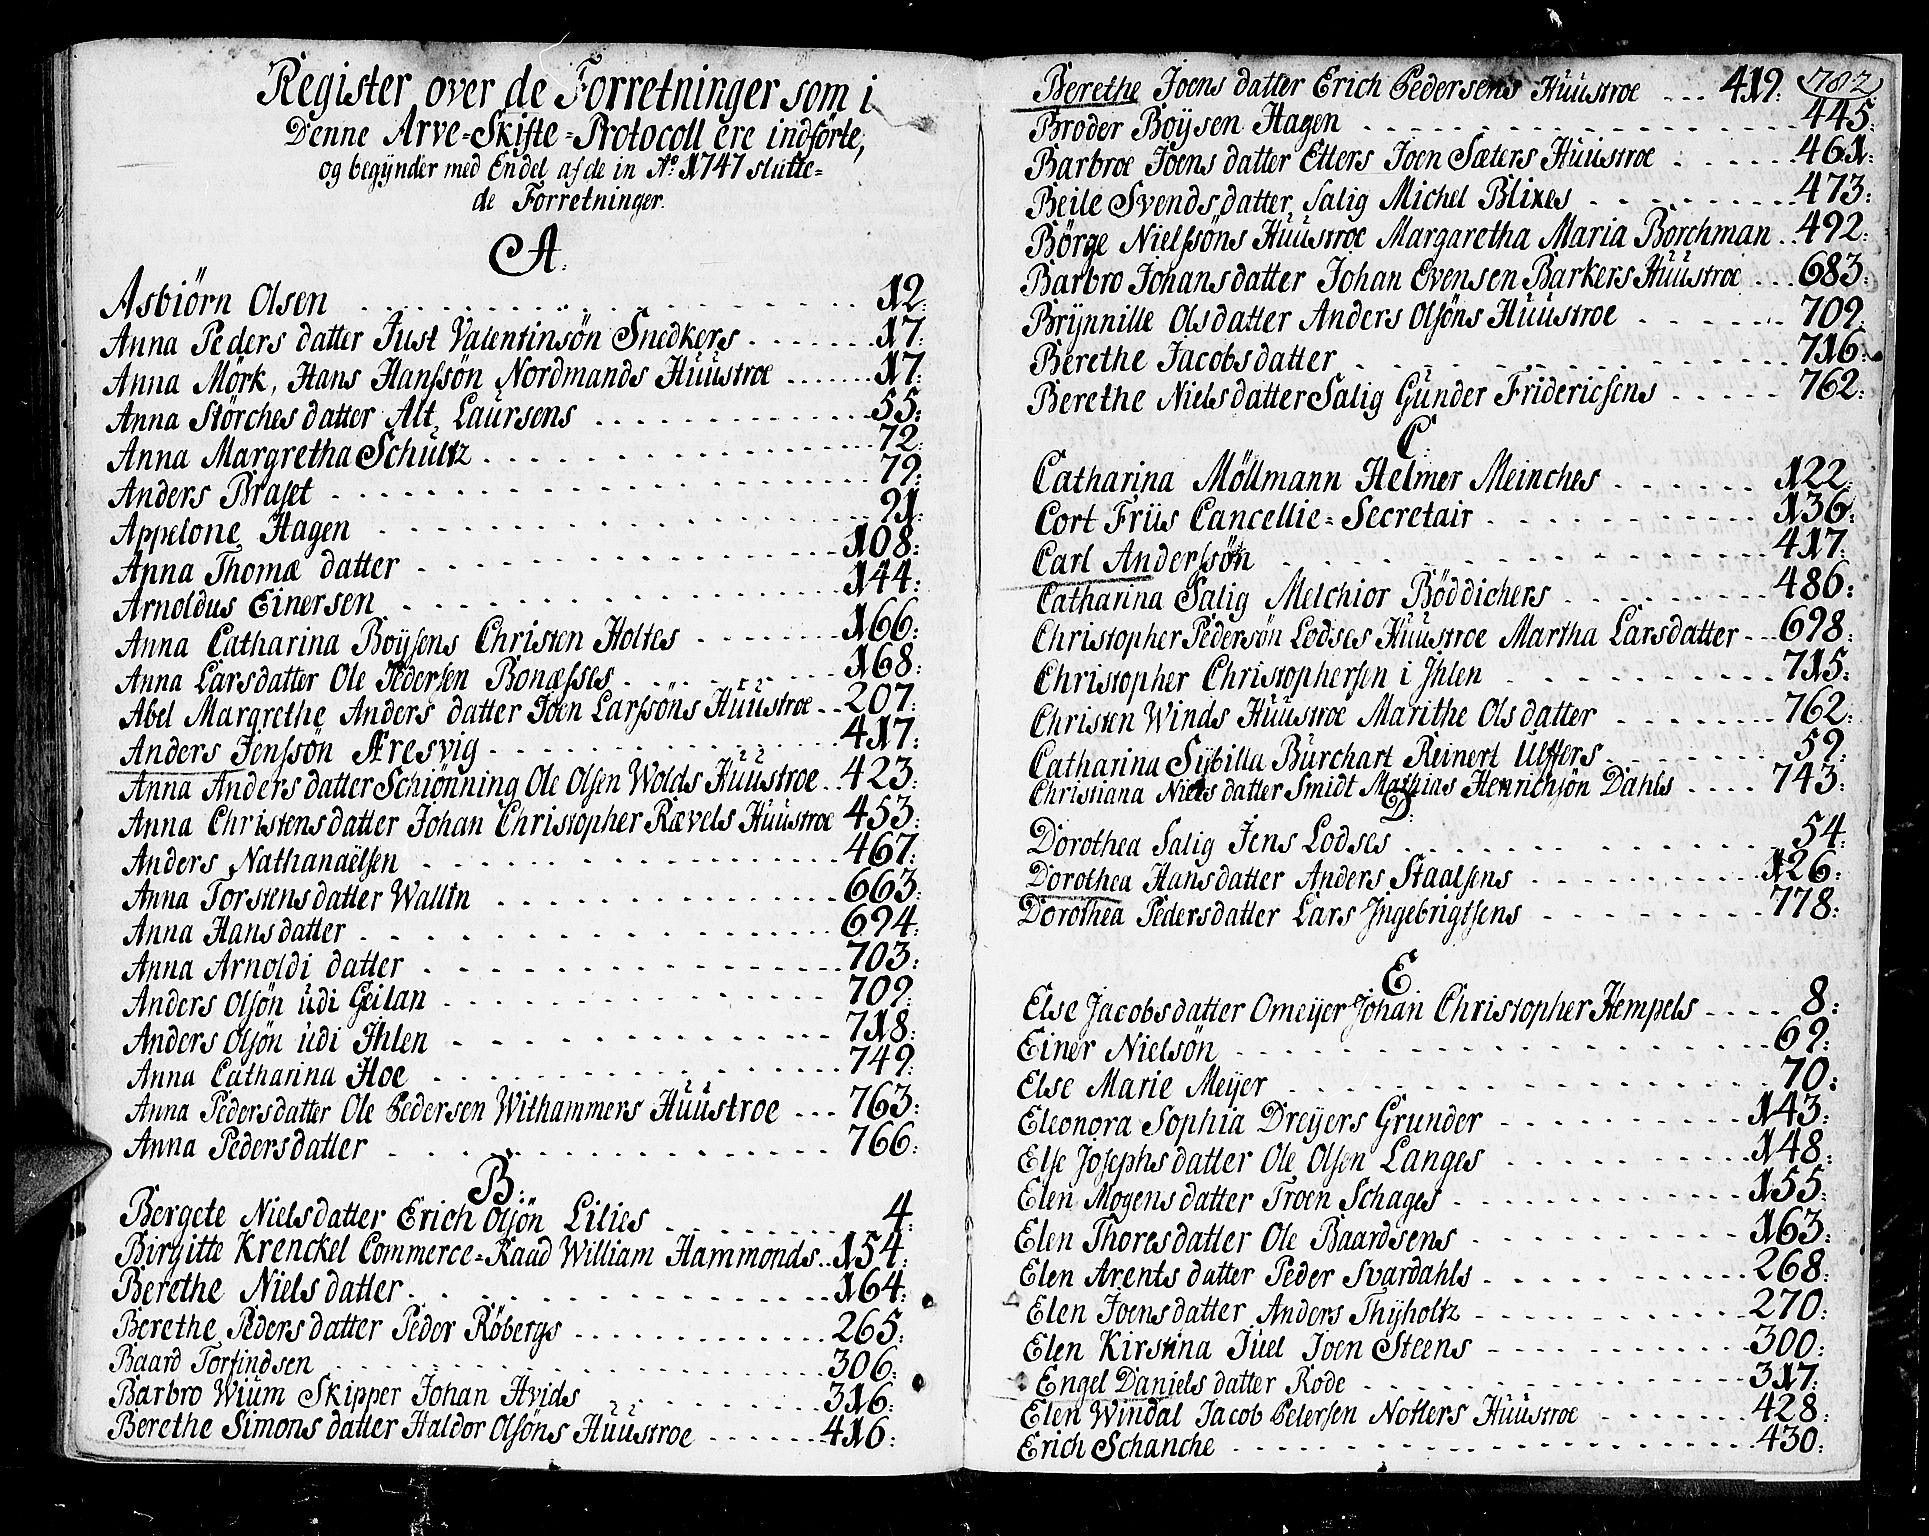 Register over de Forretninger som i
Denne Arve=Skifte=Protocoll ere indförte,
og begÿnder med Endel af de in Ao. 1747 slutte=
de Forretninger.
A.
Asbiörn Olsen 12:
Anna Peders datter Just Valentinsön Snedkers 17:
Anna Mörk, Hans Hanssön Nordmands Huustroe 17:
Anna Störches datter Alt. Laursens 55:
Anna Margretha Schultz 72:
Anders Braset 79:
Appelone Hagen 91:
Anna Thomæ datter 108:
Arnoldus Einersen 144:
Anna Catharina Boÿsens Christen Holtes 166:
Anna Larsdatter Ole Pedersen Bonæsses 168:
Abel Margrethe Anders datter Joen Larssöns Huustroe 207:
Anders Jenssön Æresvig 417:
Anna Anders datter Schiönning Ole Olsen Wolds Huustroe 423:
Anna Christensdatter Johan Christopher Rævels Huustroe 453:
Anders Nathanaëlsen 467:
Anna Torstensdatter Wallin 663:
Anna Hansdatter 694:
Anna Arnoldi datter 703:
Anders Olsön udi Geilan 709:
Anders Olsön udi Ihlen 718:
Anna Catharina Hoe 749:
Anna Pedersdatter Ole Pedersen Withammers Huustroe 763:
Anna Pedersdatter 766:
B:
Bergete Nielsdatter Erich Olsön Lilies 4:
Birgitte Krenckel Commerce=Raad William Hammonds 154:
Berethe Niels datter 164:
Berethe Peders datter Peder Röbergs 265:
Baard Torfindsen 306:
Barbro Wium Skipper Johan Hvids 316:
Berethe Simons datter Haldor Olsöns Huustroe 416:
782
Berethe Joens datter Erich Pedersens Huustroe 419:
Broder Boÿsen Hagen 445:
Barbroe Joens datter Etters Joen Sæters Huustroe 461:
Beile Svends datter Salig Michel Blixes 473:
Börge Nielssöns Huustroe Margaretha Maria Borchman 492:
Barbro Johansdatter Johan Evensen Barkers Huustroe 683:
Brÿnnille Olsdatter Anders Olsöns Huustroe 709:
Berethe Jacobsdatter 716:
Berethe Nielsdatter Salig Gunder Fridericsens 762:
C
Catharina Möllmann Helmer Meinches 122:
Cort Friis Cancellie=Secretair 136:
Carl Anderssön 417:
Catharina Salig Melchior Böddichers 486:
Christopher Pedersön Lodses Huustroe Martha Larsdatter 698:
Christopher Christophersen i Jhlen 715:
Christen Winds Huustroe Marithe Olsdatter 762:
Catharina Sÿbilla Burchart Reinert Ulffers 59:
Christiana Niels datter Smidt Mathias Henrichsön Dahls 743:
D:
Dorothea Salig Jens Lodses 54:
Dorothea Hansdatter Anders Staalsens 126:
Dorothea Pedersdatter Lars Jngebrigtsens 778:
E
Else Jacobsdatter Omeÿer Johan Christopher Hempels 8:
Einer Nielsön 69:
Else Marie Meÿer 70:
Eleonora Sophia Dreÿers Grunder 143:
Else Josephs datter Ole Olsen Langes 148:
Elen Mogens datter Troen Schages 155:
Elen Thoresdatter Ole Baardsens 163:
Elen Arents datter Peder Svardahls 268:
Elen Joensdatter Anders Thÿholtz 270:
Elen Kirstina Juel Joen Steens 300:
Engel Daniels datter Rode 317:
Elen Windal Jacob Petersen Notlers Huustroe 428:
Erich Schanche 430: